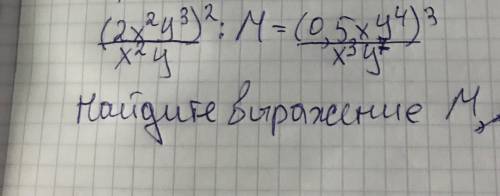 (2x²y³)² : M = (0,5xy⁴)³
x²y x³y⁷
Найдите выражение M,